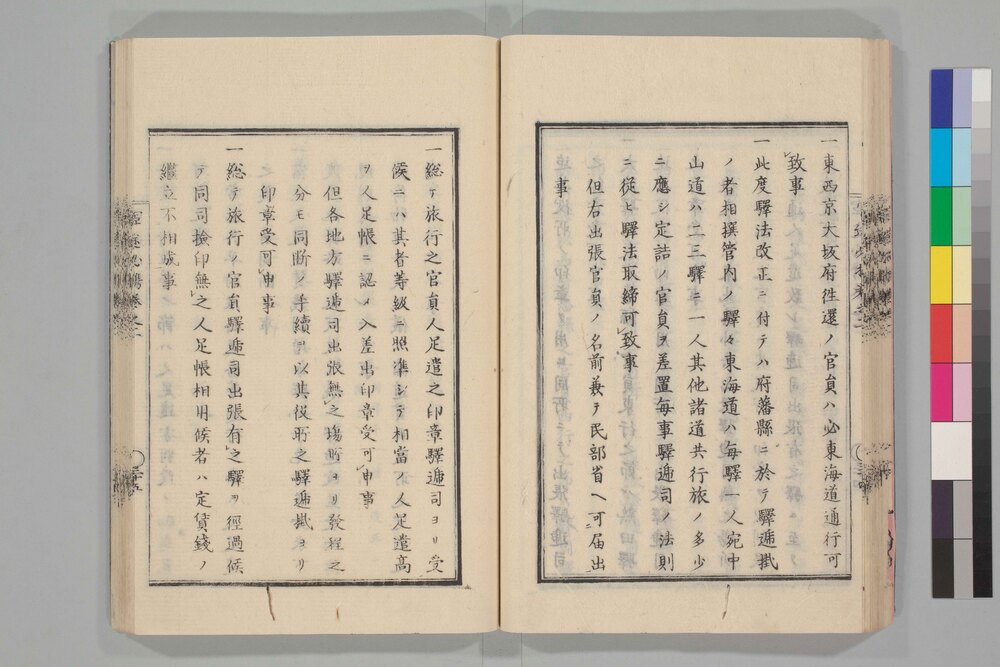 一東西京大坂府徃還ノ官員ハ必東海道通行可
致事
一此度驛法改正ニ付テハ府藩縣ニ於テ驛逓掛
ノ者相撰管内ノ驛々東海道ハ毎驛一人宛中
山道ハ二三驛ニ一人其他諸道共行旅ノ多少
ニ應シ定詰ノ官員ヲ差置毎事驛逓司ノ法則
ニ從ヒ驛法取締可致事
但右出張官員ノ名前兼テ民部省ヘ可届出
事
一総テ旅行之官員人足遣之印章驛逓司ヨリ受
候ニハ其者等級ニ照準シテ相當ノ人足遣高
ヲ人足帳ニ認メ入差出印章受可申事
但各地方驛逓司出張無之塲所ヨリ發程之
分モ同断ノ手續ヲ以其役所之驛逓掛ヨリ
印章受可申事
一総テ旅行ノ官員驛逓司出張有之驛ヲ經過候
テ同司検印無之人足帳相用候者ハ定賃錢ノ
継立不相成事